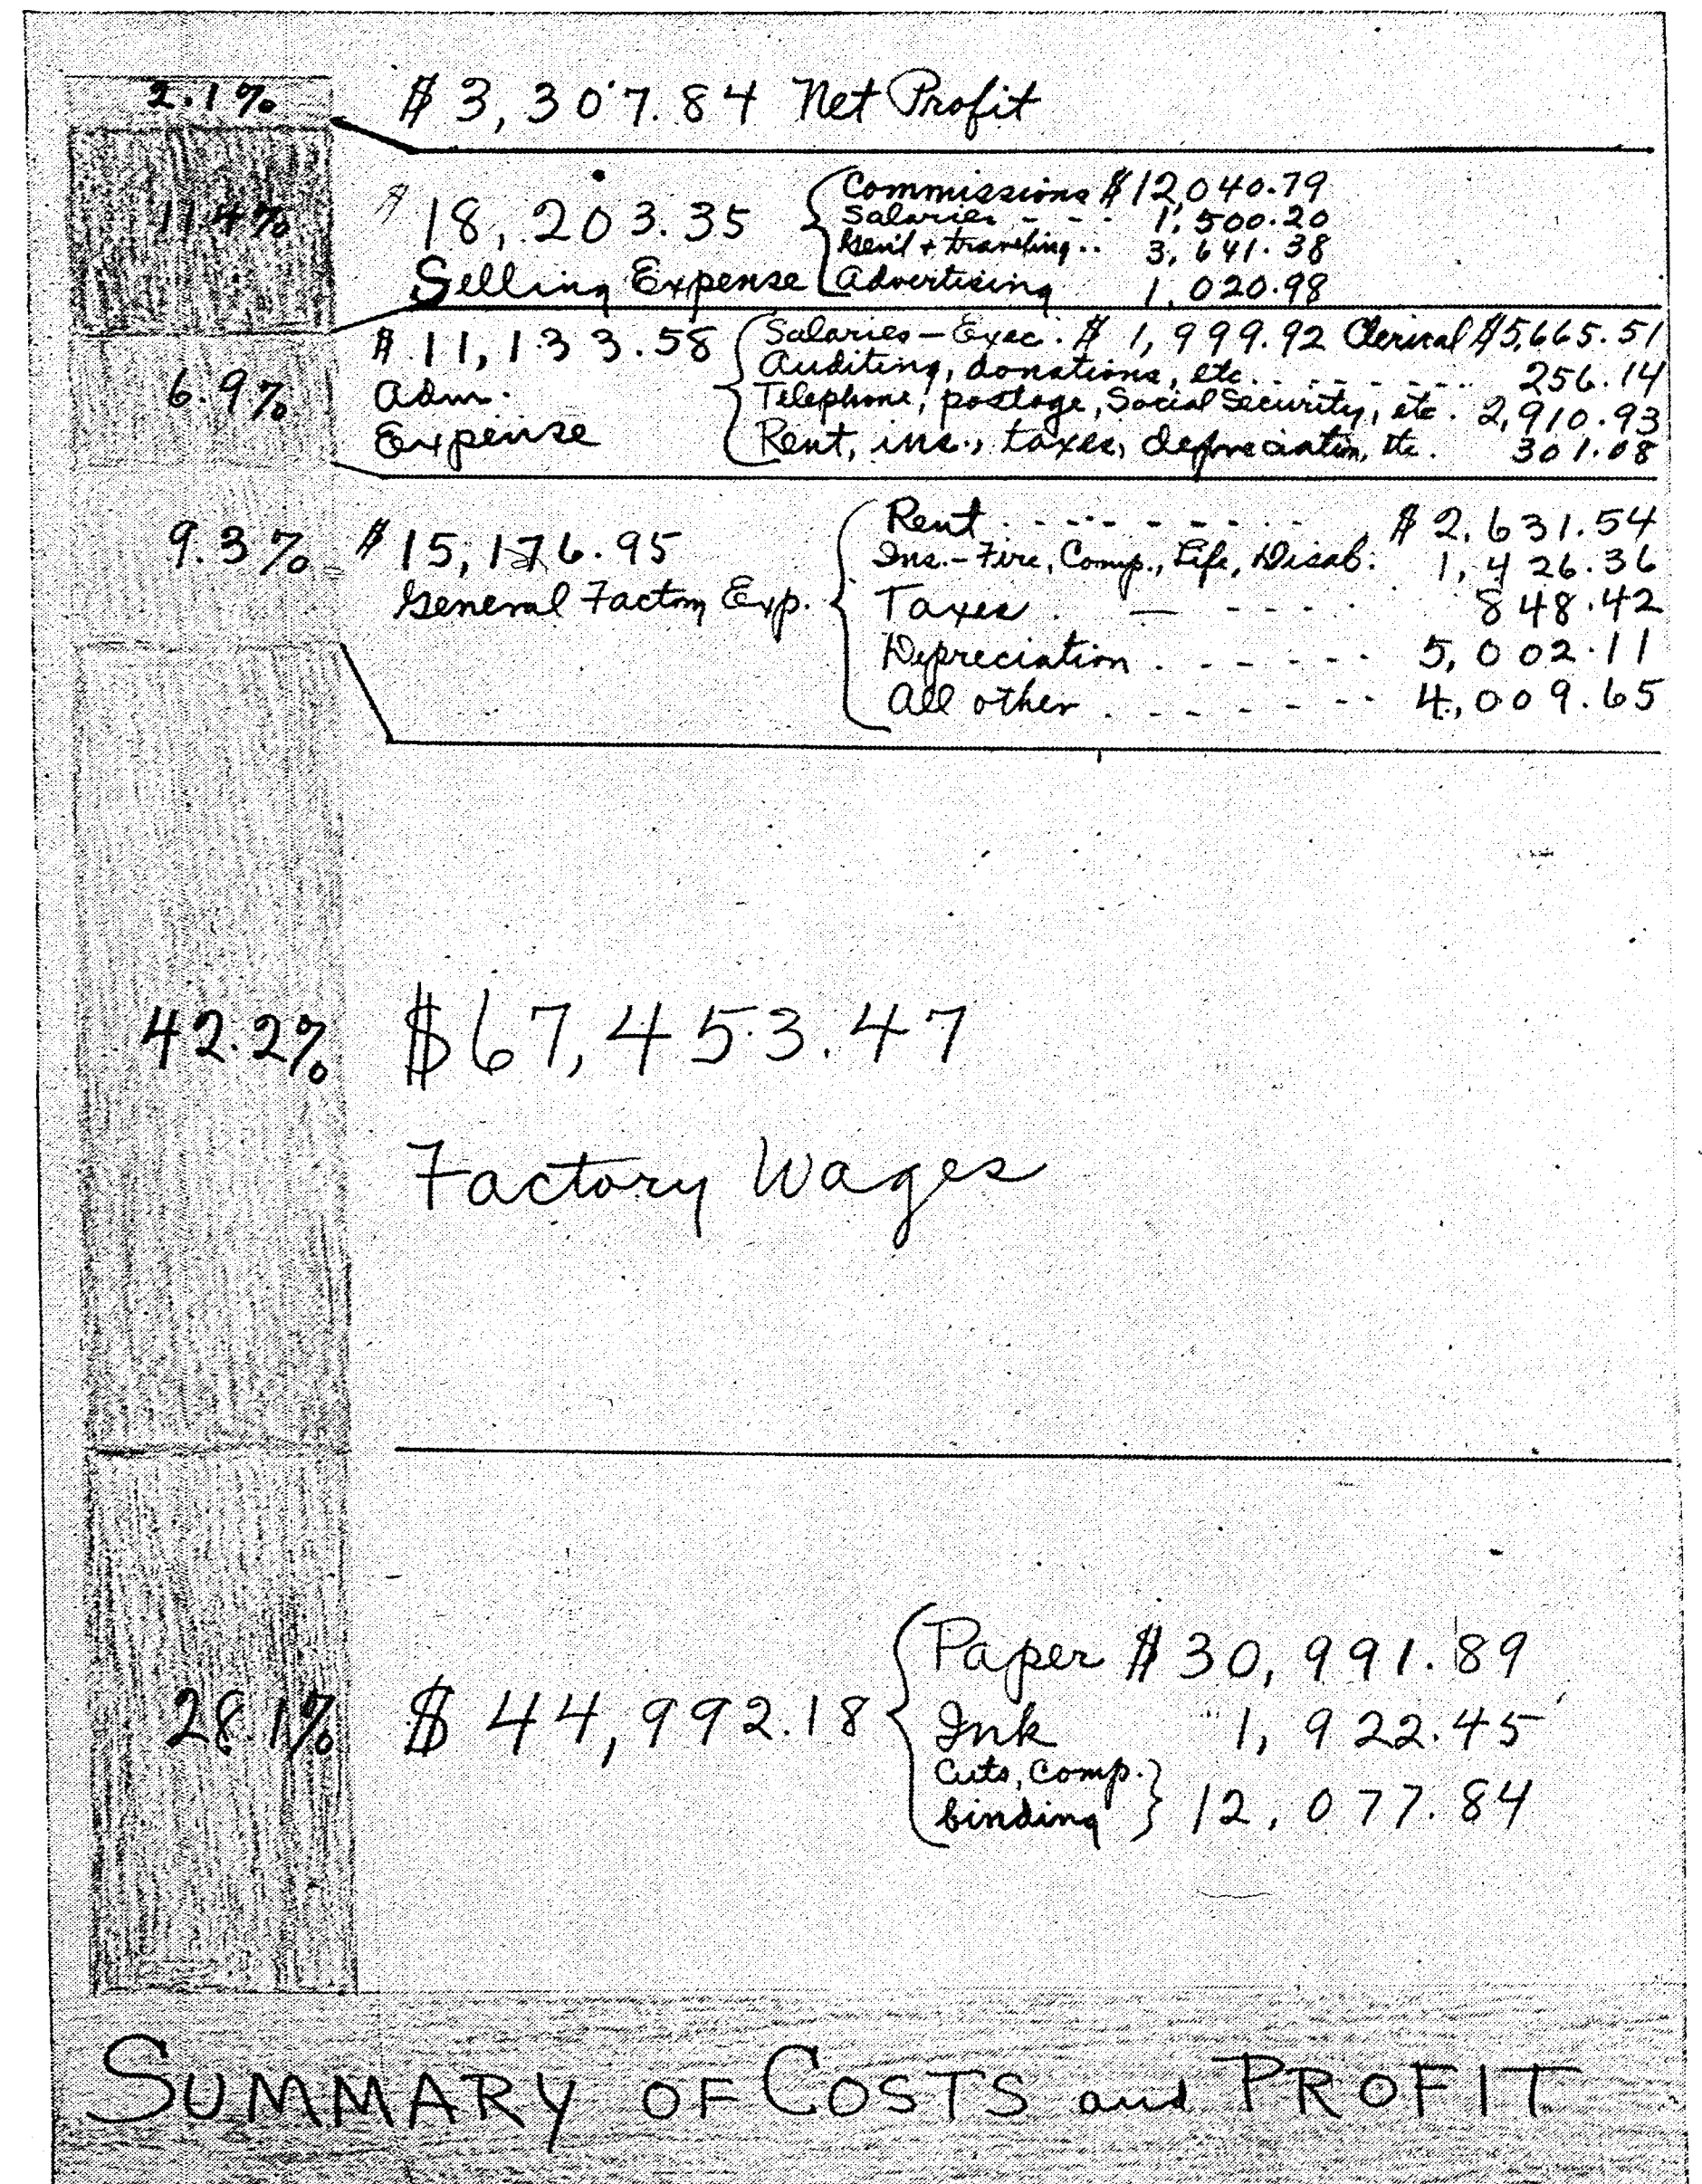 2.1% $3,307.84 Net Profit
11.4% $18,203.35 Selling Expense
Commissions $12,040.79
Salaries - - - 1,500.20
Genl + traveling .. 3,641.38
Advertising 1,020.98
6.9% $11,133.58 Adm. Expense
Salaries — Exec. $1,999.92 Clerical $5,665.51
Auditing, donations, etc. - - - - - 256.14
Telephone, postage, Social Security, etc. 2,910.93
Rent, ins., taxes, depreciation, etc. 301.08
9.3% $15,176.95 General Factory Exp.
Rent - - - - - - - $2,631.54
Ins. - Fire, Comp., Life, Disab. 1,426.36
Taxes . — - - - - 848.42
Depreciation . - - - - - 5,002.11
All other . - - - - - - 4,009.65
42.2% $67,453.47
Factory Wages
28.1% $44,992.18
Paper $30,991.89
Ink 1,922.45
Cuts, comp.
binding } 12,077.84
SUMMARY OF COSTS and PROFIT